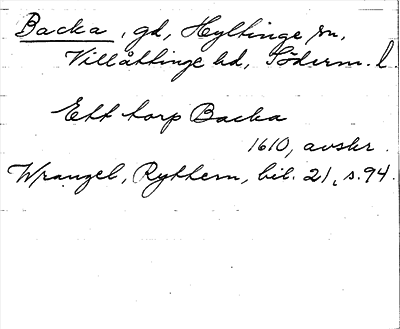 Backa, gd, Hyltinge sn,
Villåttinge hd, Söderm. l.
Ett torp Backa
1610, avskr.
Wrangel, Rythern, bil. 21, s. 94.